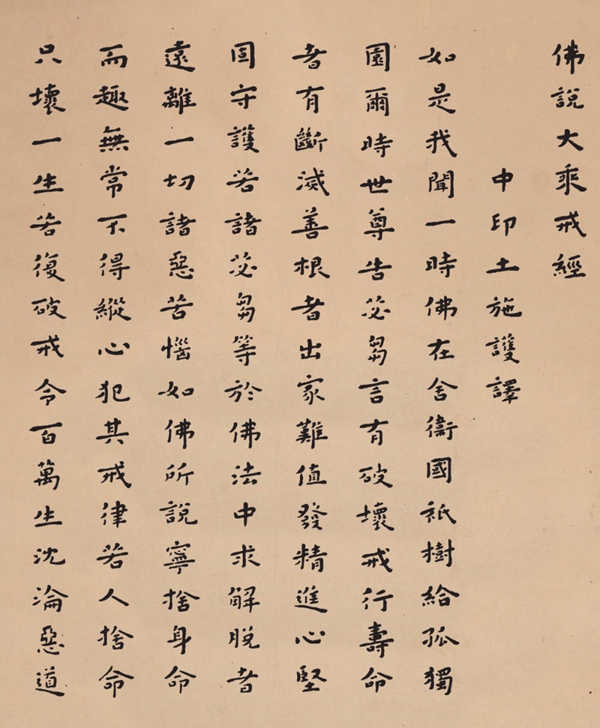 佛說大乘戒經
中印土施護譯
如是我聞一時佛在舍衛國祇樹給孤獨
園爾時世尊告苾芻言有破壞戒行壽命
者有斷滅善根者出家難值發精進心堅
固守護若諸苾芻等於佛法中求解脫者
遠離一切諸惡苦惱如佛所說寧捨身命
而趣無常不得縱心犯其戒律若人捨命
只壞一生若復破戒令百萬生沈淪惡道